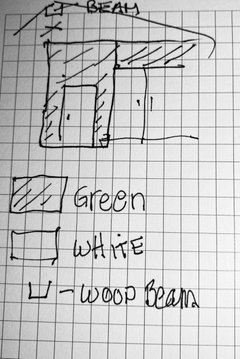 BEAM
Green
WHITE
- WOOD Beam